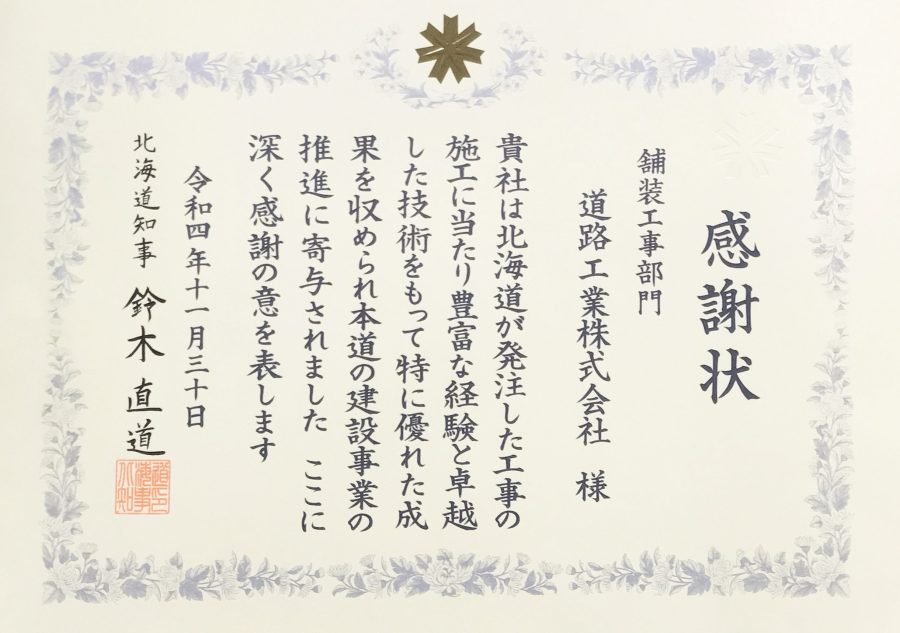 感謝状
舗装工事部門
道路工業株式会社 様
貴社は北海道が発注した工事の
施工に当たり豊富な経験と卓越
した技術をもって特に優れた成
果を収められ本道の建設事業の
推進に寄与されました ここに
深く感謝の意を表します
令和四年十一月三十日
北海道知事 鈴木直道